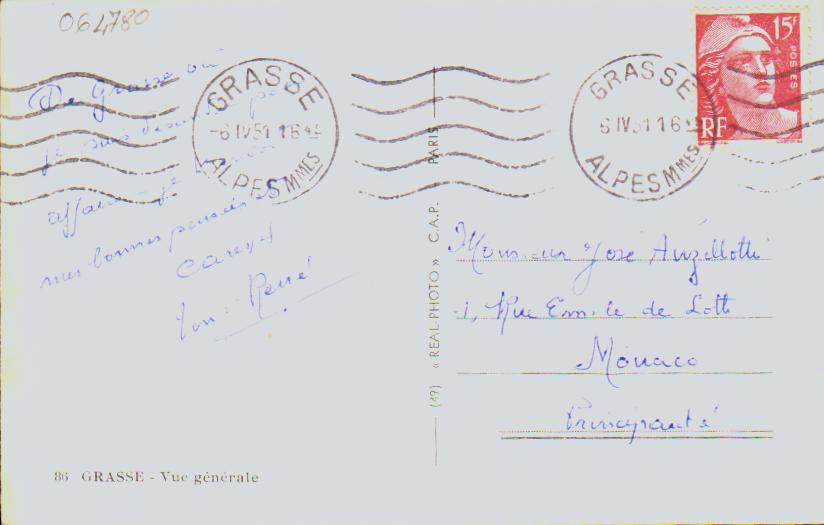 064780
De Grasse où
je suis
affaires je
mes bonnes pensées et
caresses
Ton René
GRASSE
-6 IV 51 16 45
ALPES MMES
GRASSE
6 IV 51 16 45
ALPES MMES
15F
POSTES
RF
(49) « REAL-PHOTO » C.A.P. PARIS
Monsieur José Anzellotti
1, Rue Emile de Loth
Monaco
Principauté
86 GRASSE - Vue générale